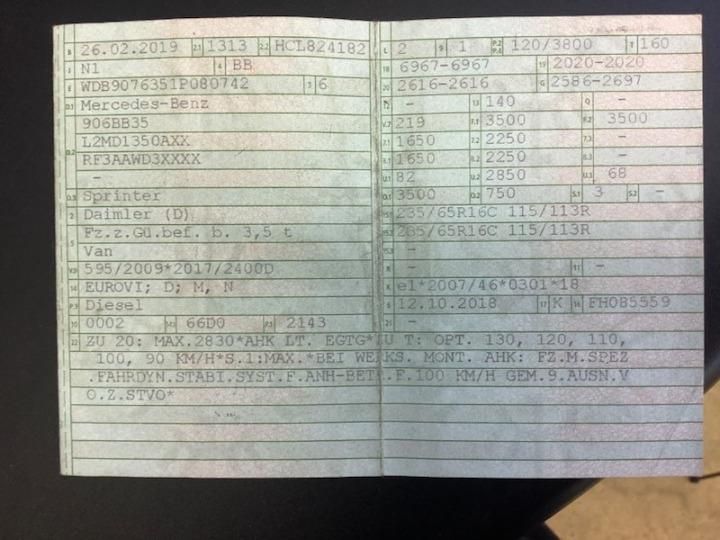 B 26.02.2019 2.1 1313 2.2 HCL824182
J N1 4 BB
E WDB9076351P080742 3 6
D.1 Mercedes-Benz
906BB35
D.2 L2MD1350AXX
RF3AAWD3XXXX
-
D.3 Sprinter
2 Daimler (D)
5 Fz.z.Gü.bef. b. 3,5 t
Van
V.9 595/2009*2017/2400D
14 EUROVI; D; M, N
P.3 Diesel
10 0002 14.1 66D0 P.1 2143
L 2 9 1 P.2 P.4 120/3800 T 160
18 6967-6967 19 2020-2020
20 2616-2616 G 2586-2697
- 13 140 Q -
V.7 219 F.1 3500 F.2 3500
7.1 1650 7.2 2250 7.3 -
8.1 1650 8.2 2250 8.3 -
U.1 82 U.2 2850 U.3 68
O.1 3500 O.2 750 S.1 3 S.2 -
15.1 235/65R16C 115/113R
15.2 235/65R16C 115/113R
15.3 -
R - 11 -
K e1*2007/46*0301*18
6 12.10.2018 17 K 16 FH085559
21 -
22 ZU 20: MAX.2830*AHK LT. EGTG*ZU T: OPT. 130, 120, 110,
100, 90 KM/H*S.1:MAX.*BEI WERKS. MONT. AHK: FZ.M.SPEZ
.FAHRDYN.STABI.SYST.F.ANH-BETR.F.100 KM/H GEM.9.AUSN.V
O.Z.STVO*